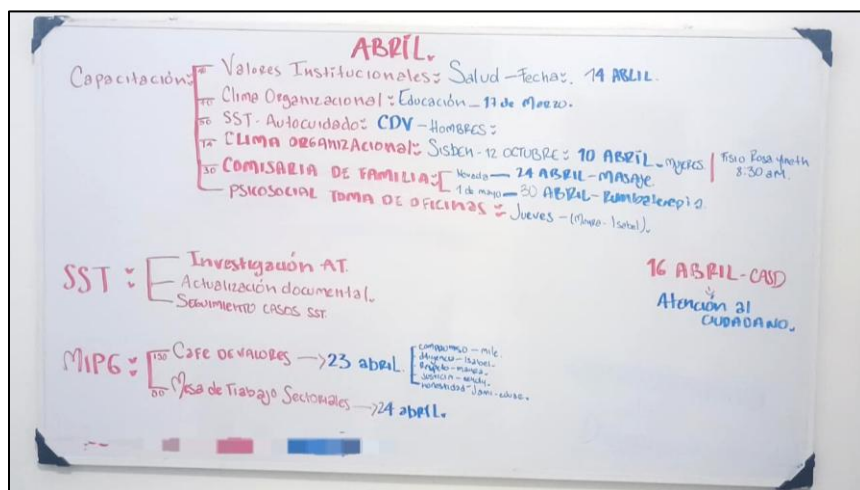 ABRÍL.
Capacitación: Valores Institucionales: Salud - Fecha: 14 ABRIL.
10 Clima Organizacional: Educación - 17 de Marzo.
50 SST - Autocuidado: CDV - HOMBRES:
14 CLIMA ORGANIZACIONAL: SISBEN - 12 OCTUBRE: 10 ABRÍL - Mujeres | Fisio Rosa Yineth
8:30 am.
30 COMISARIA DE FAMILIA: Nevada — 24 ABRIL - MASAJE
1 de mayo — 30 ABRIL - Rumbaterapia
PSICOSOCIAL TOMA DE OFICINAS: Jueves - (Mayra - Isabel).
SST: Investigación AT.
Actualización documental.
SEGUIMIENTO CASOS SST.
16 ABRIL - CASD
Atención al
CIUDADANO.
MIPG: 150 Cafe DE VALORES → 23 abril.
compromiso - mile.
diligencia - Isabel.
Respeto - mayra.
Justicia - sendy.
honestidad -
50 Mesa de Trabajo Sectoriales → 24 abril.